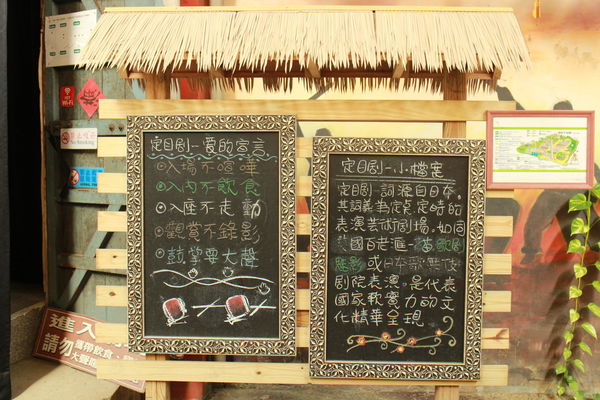 定目劇－愛的宣言
◎入場不喧嘩
◎入內不飲食
◎入座不走動
◎觀賞不錄影
◎鼓掌要大聲
定目劇－小檔案
定目劇一詞源自日本。
其詞義為定点、定時的
表演芸術劇場。如同
百老滙－
或日本歌舞伎
劇院表演。是代表
國家軟實力的文
化精華呈現
WiFi
No Smoking
進入
請勿
攜帶飲食、
大聲